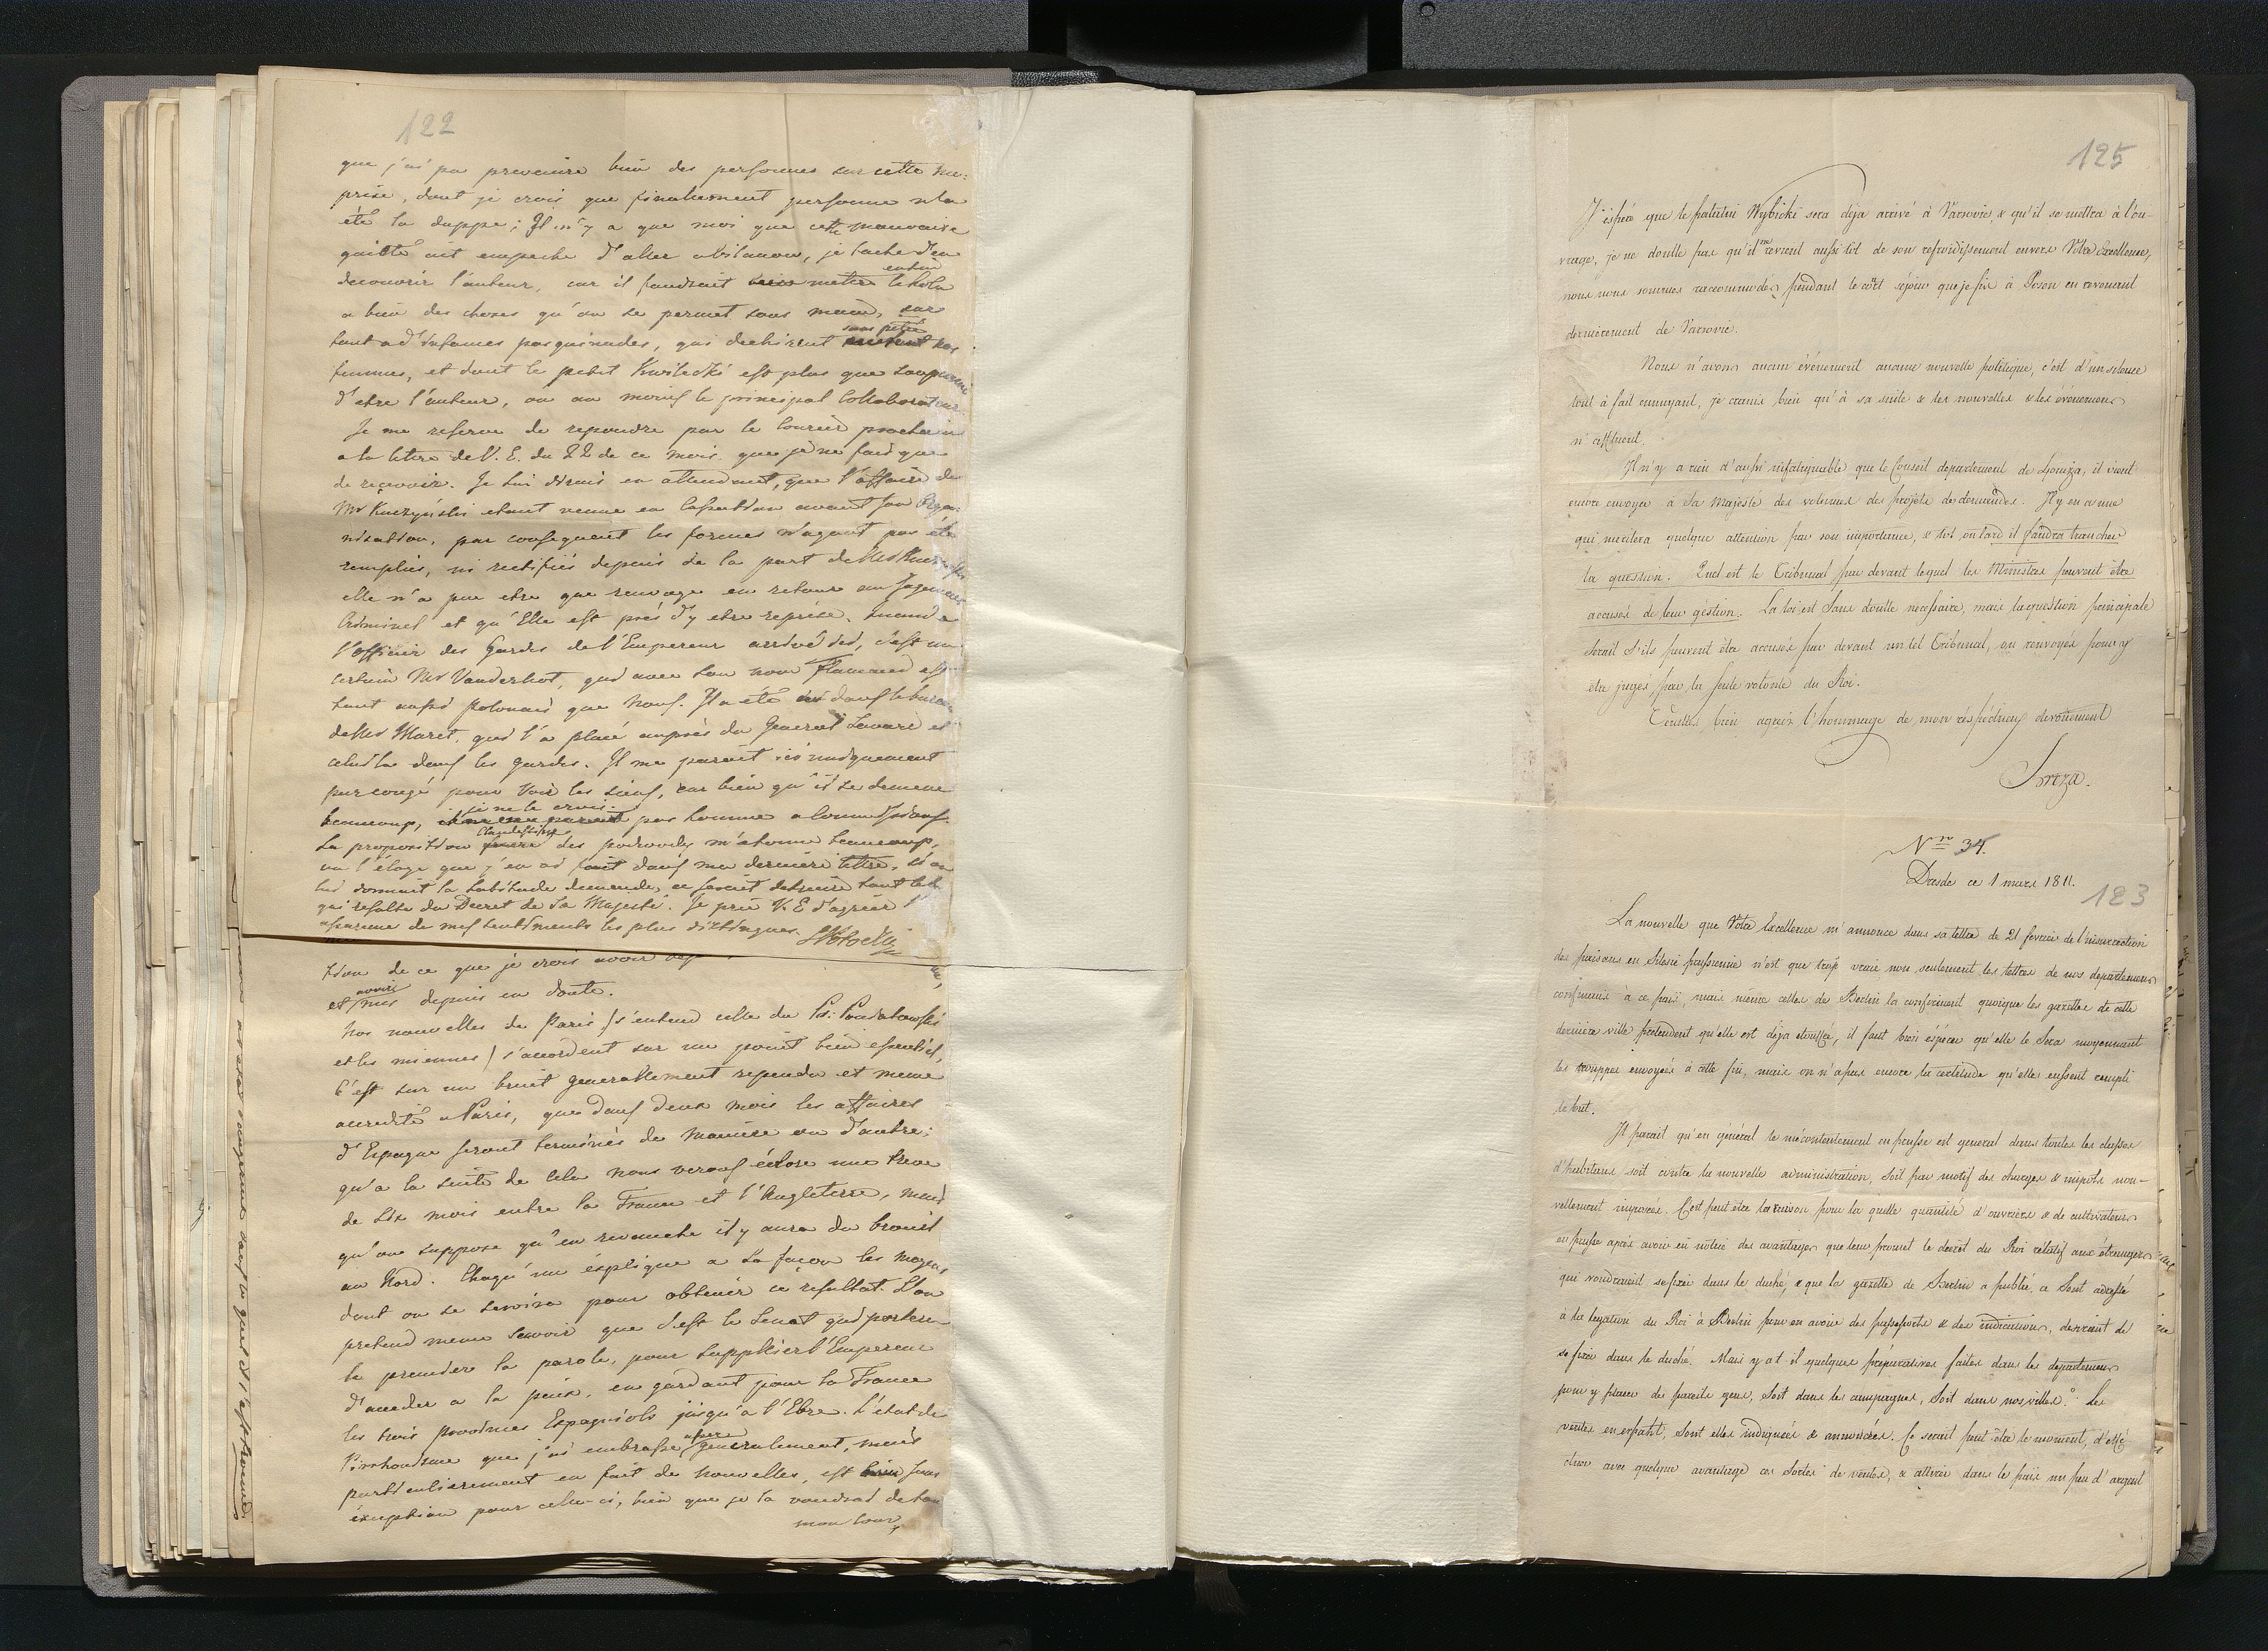 122
que j'ai pu prevenire bien des personnes sur cette me:
prise, dont je crois que finalement personne n'a
été la duppe; Il n'y a que moi que cette mauvaise
gaieté ait empeche d'aller, je tache d'en
decouvrir l'auteur, car il faudrait enfin metre le hola
a bien des choses qu'on se permet sous main, car
tant ad'infames pasquinades, qui dechirent sans pitié nos
femmes, et dont le petit Kwilecki est plus que soupconné
d'etre l'auteur, ou au moins le principal Collaborateur.
Je me reserve de repondre par le Courier prochain
a la letre de V. E. du 22 de ce mois que je ne fais que
de reçevoir. Je lui dirais en attendant, que l'affaire de
Mr Kuczyński etant venue en Cassation avant son Orga:
nisation, par consequent les formes n'ayant pas été
remplies, ni rectifiés depuis de la part de Mr
elle n'a pue etre que renvoyé en retour au Jugement
Criminel et qu'Elle est près d'y etre reprise. Quand a
l'officier des Gardes de l'Empereur arrivé ici, c'est un
certain Mr Vanderhot, qui avec son nom Flamand est
tout aussi polonais que nous. Il a été dans le bureau
de Mr Maret, qui l'a placé auprès du General Savari et
celui la dans les gardes. Il me parait ici uniquement
par congé pour voir les siens, car bien qu'il se demene
beaucoup, je ne le crois pas homme a Commissions.
La proposition Clandestine des m'etonne beaucoup,
vu l'éloge que j'en ai fait dans ma derniere lettre. Si on
lui donnait la latitude demandé, ce serait detruire tout le
qui resulte du Decret de Sa Majesté. Je prie V. E d'agréer l'
assurance de mes sentiments les plus distingués.
tion de ce que je crois avoir
et avoir mis depuis en doute.
Nos nouvelles de Paris /s'entend celle du Pr: Poniatowski
et les miennes/ s'accordent sur un point bien essentiel,
C'est sur un bruit generallement repandu et meme
accredité a Paris, que dans deux mois les affaires
d'Espagne seront terminés de maniere ou d'autre;
qu'a la suite de cela nous verons éclore une treve
de six mois entre la France et l'Angleterre, mais
qu'on suppose qu'en revanche il y aura du brouit
au Nord. Chaqu'un éxplique a sa façon les moyens
dont on se servira pour obtenir ce resultat. L'on
pretend meme savoir que c'est le Senat qui portera
le premier la parole, pour supplier l'Empereur
d'acceder a la paix, en gardant pour la France
les trois provinces Espagnols jusqu'a l'Ebre. L'état de
Pirrhonisme que j'ai embrassé assez generalement, mais
particulierement en fait de nouvelles, est sans
éxception pour celle-ci, bien que je la voudrais de tout
mon coeur
125
J'éspére que le palatin Wybicki sera déja arrivé à Varsovie, & qu'il se mettra à l'ou-
vrage, je ne doutte pas qu'il ne revient aussi tôt de son refroidissement envers Votre Excellence,
nous nous sommes raccommodés pendant le court séjour que je fis à Posen en revenant
dernièrement de Varsovie.
Nous n'avons aucun événement aucune nouvelle politique, c'est d'un silence
tout à fait ennuyant, je crains bien qu'à sa suite & les nouvelles & les événemens
n'affluent.
Il n'y a rien d'aussi infatiguable que le Conseil departement de Łomza, il vient
encore envoyer à Sa Majesté des volumes des projets de demandes. Il y en a une
qui meritera quelque attension par son importance, & tôt ou tard il faudra trancher
la question. Quel est le Tribunal par devant lequel les Ministres peuvent être
accusés de leur géstion. La loi est sans doutte necessaire, mais la question principale
serait s'ils peuvent être accusés par devant un tel Tribunal, ou renvoyés pour y
être jugés par la seule volonté du Roi.
Veuillez bien agréer l'hommage de mon réspéctueux devouement
Breza.
Nro 34.
Dresde ce 1 mars 1811.
123
La nouvelle que Votre Excellence m'annonce dans sa lettre de 21 fevrier de l'insurrection
des paisans en Silesie prussienne n'est que trop vraie non seulement les lettres de nos departemens
confinans à ce païs, mais même celles de Berlin la confirment quoique les gazettes de cette
dernière ville pretendent qu'elle est déja etouffée, il faut bien éspérer qu'elle le sera moyennant
les trouppes envoyées à cette fin, mais on n'a pas encore la certitude qu'elles eussent rempli
le but.
Il parait qu'en général le mécontentement en prusse est general dans toutes les classes
d'habitans soit contre la nouvelle administration, soit par motif des charges & impots nou-
vellement imposés. C'est peut être la raison pour la quelle quantité d'ouvriers & de cultivateurs
en prusse après avoir eû notice des avantages que leur promet le decret du Roi rélatif aux étrangers
qui voudraient se fixer dans le duché, & que la gazette de Berlin a publié, ce sont adréssé
à la legation du Roi à Berlin pour en avoir des passeports & des indications, desirant de
se fixer dans le duché. Mais y a t'il quelques préparatives faites dans les departemens
pour y placer de pareils gens, soit dans les campagnes, soit dans nos villes? Les
ventes en, sont elles indiquées & annoncées. Ce serait peut être le moment, d'éffé-
ctuer avec quelque avantage ces sortes de ventes, & attirer dans le païs un peu d'argent